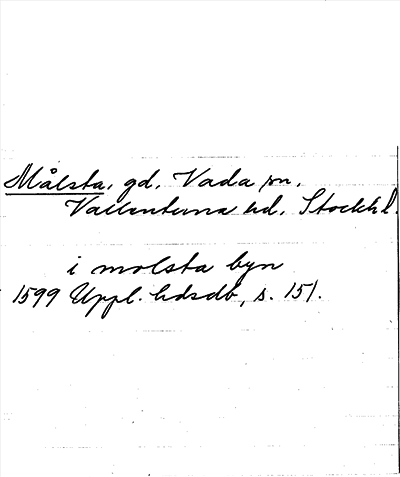 Målsta, gd, Vada sn,
Vallentuna hd, Stockh.l.
i molsta byn
1599 Uppl. hdsdb, s. 151.